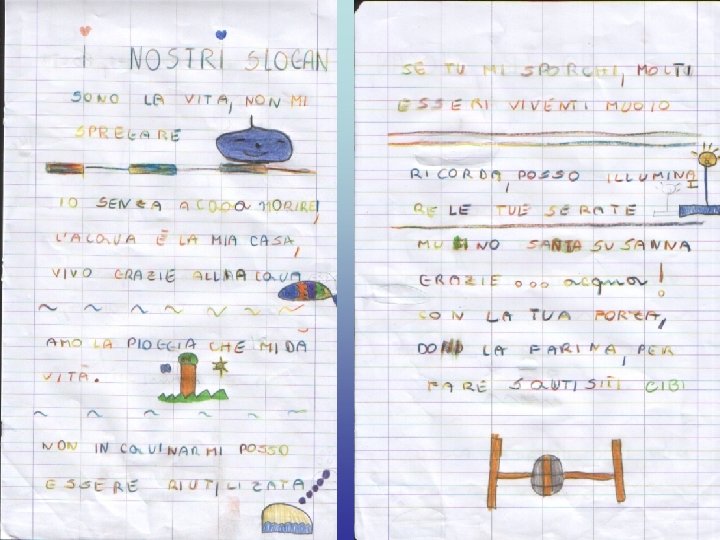 I NOSTRI SLOGAN
SONO LA VITA, NON MI
SPREGARE
IO SENZA ACQUA MORIREI,
L'ACQUA È LA MIA CASA,
VIVO GRAZIE ALL'ACQUA
AMO LA PIOGGIA CHE MI DA
VITA.
NON IN CQUINARMI POSSO
ESSERE RIUTILIZATA
SE TU MI SPORCHI, MOLTI
ESSERI VIVENTI MUOIO
RICORDA, POSSO ILLUMINA
RE LE TUE SERATE
MULINO SANTA SUSANNA
GRAZIE ... acqua!
CON LA TUA FORZA,
DO LA FARINA, PER
FARE SQUISITI CIBI